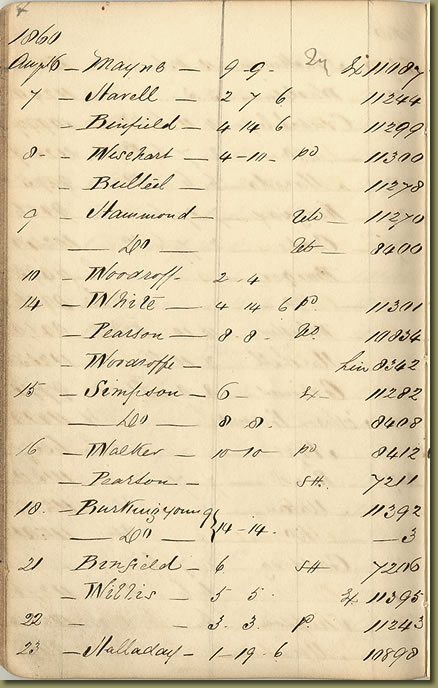 1860
Augt 6 - Mayno - 9 - 9 - 11087
7 - Navell - 2 7 6 11244
- Binfield - 4 14 6 11299
8 - Wisehart - 4 - 10 - po 11300
- Bulteel - 11278
9 - Hammond - 11270
- Do - 8400
10 - Woodroff - 2 - 4
14 - White - 4 14 6 po 11301
- Pearson - 8 - 8 - 10834
- Woodroffe - 8342
15 - Simpson - 6 - 11282
- Do - 8 8 - 8408
16 - Walker - 10 - 10 - po 8412
- Pearson - SH. 7211
18 - 11392
- Do - 14 - 14 - - 3
21 - Binfield - 6 SH 7216
- Willis - 5 5 - 11395
22 - - 3 - 3 - p. 11243
23 - Halladay - 1 - 19 - 6 10890